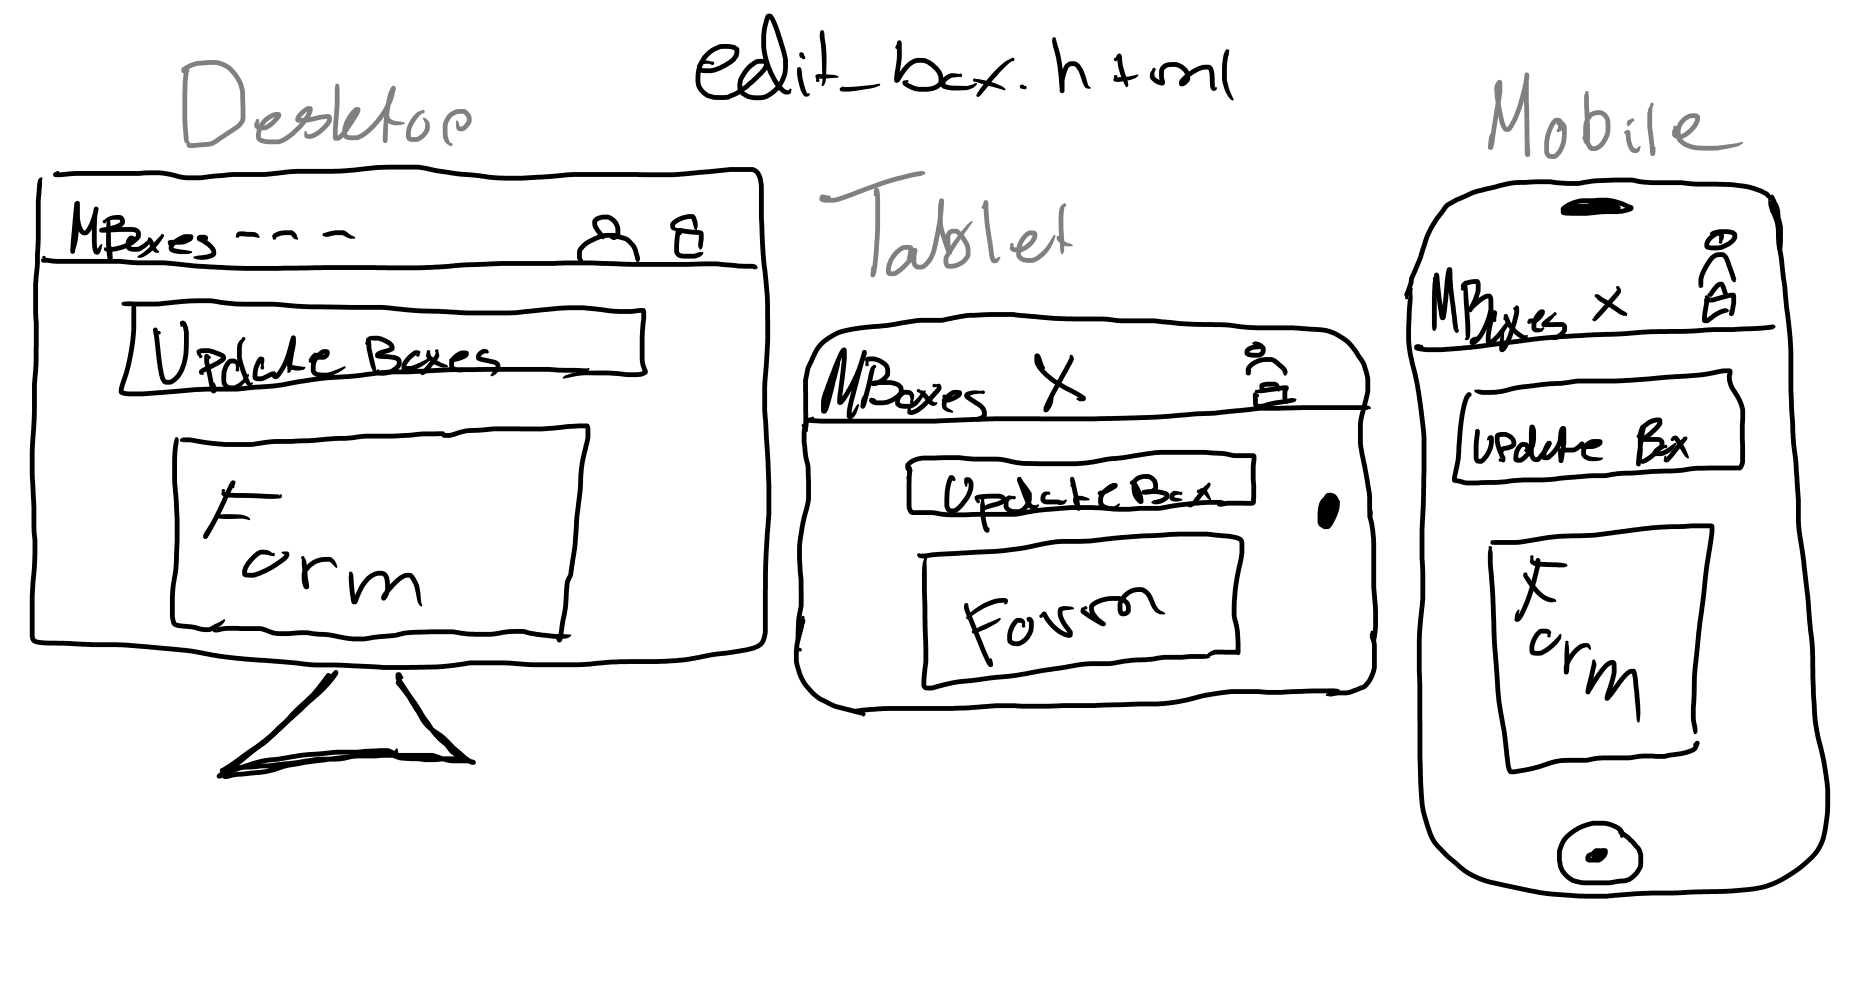 edit_box.html
Desktop
MBoxes - - -
Update Boxes
F
orm
Tablet
MBoxes X
Update Box
Form
Mobile
MBoxes X
Update Box
F
orm